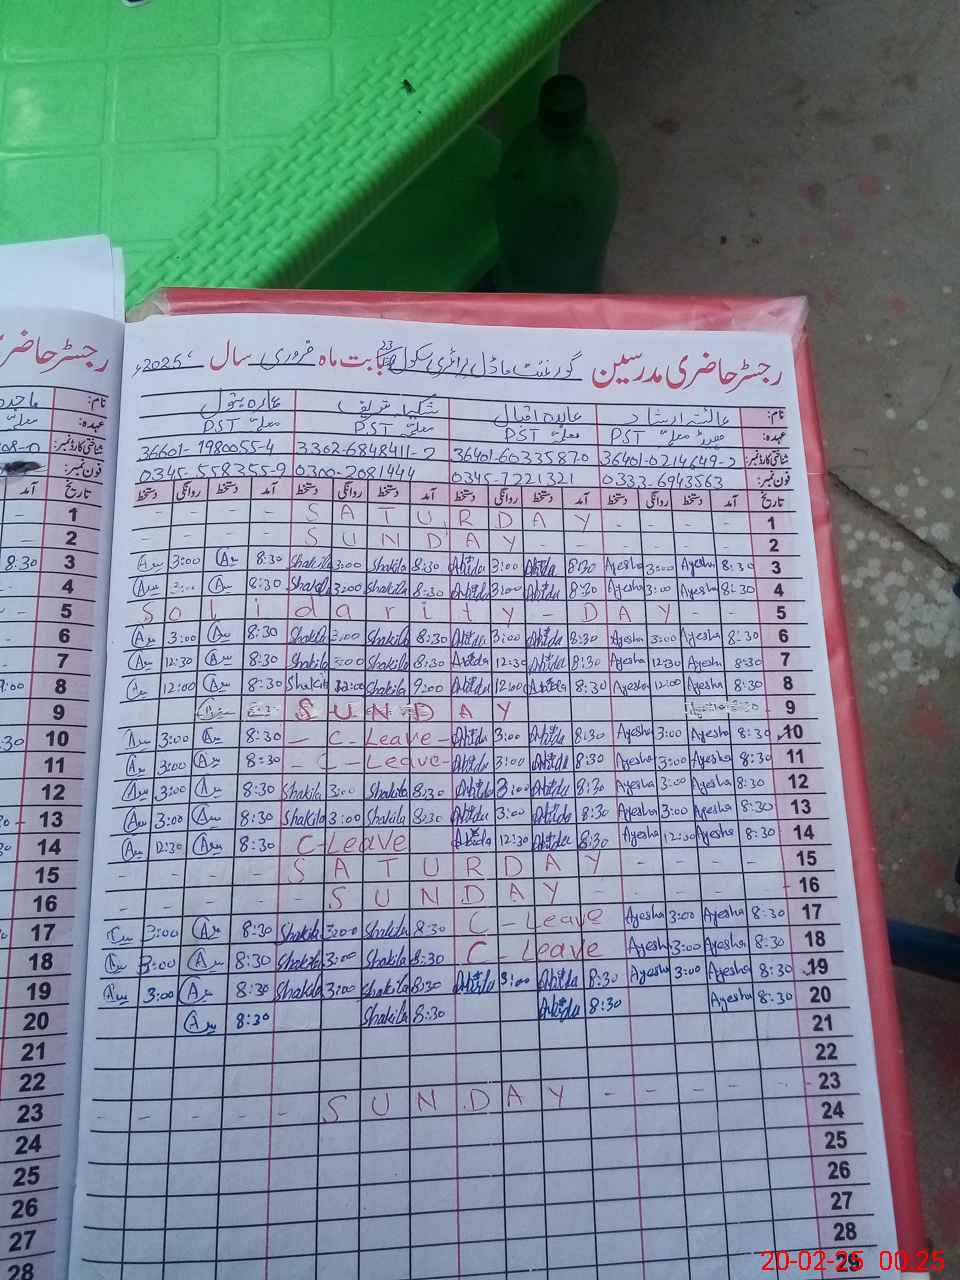 رجسٹر حاضری مدرسین گورنمنٹ ماڈل پرائمری سکول بابت ماہ فروری سال 2025ء
نام: عائشہ ارشاد عابدہ اقبال شکیلہ شریف عمارہ بتول
عہدہ: ہیڈ معلمہ PST معلمہ PST معلمہ PST معلمہ PST
شناختی کارڈ نمبر: 36401-0214649-2 36401-6033587-0 3362-6848411-2 36601-1980055-4
فون نمبر: 0333-6943563 0345-7221321 0300-2081444 0345-558355-9
تاریخ آمد دستخط روانگی دستخط آمد دستخط روانگی دستخط آمد دستخط روانگی دستخط آمد دستخط روانگی دستخط
1 - - - - S A T U R D A Y - - - 1
2 - - - - S U N D A Y - - - - - 2
3 3:00 8:30 Shakila 3:00 Shakila 8:30 Abida 3:00 Abida 8:30 Ayesha 3:00 Ayesha 8:30 3
4 8:30 Shakila 3:00 Shakila 8:30 Abida 3:00 Abida 8:30 Ayesha 3:00 Ayesha 8:30 4
5 Solidarity - DAY - - - 5
6 3:00 8:30 Shakila 3:00 Shakila 8:30 Abida 3:00 Abida 8:30 Ayesha 3:00 Ayesha 8:30 6
7 12:30 8:30 Shakila Shakila 8:30 Abida 12:30 Abida 8:30 Ayesha 12:30 Ayesha 8:30 7
8 12:00 8:30 Shakila 12:00 Shakila 9:00 Abida 12:00 Abida 8:30 Ayesha 12:00 Ayesha 8:30 8
9 S U N D A Y 9
10 3:00 8:30 - C-Leave - Abida 3:00 Abida 8:30 Ayesha 3:00 Ayesha 8:30 10
11 3:00 8:30 - C-Leave - Abida 3:00 Abida 8:30 Ayesha 3:00 Ayesha 8:30 11
12 3:00 8:30 Shakila 3:00 Shakila 8:30 Abida 3:00 Abida 8:30 Ayesha 3:00 Ayesha 8:30 12
13 3:00 8:30 Shakila 3:00 Shakila 8:30 Abida 3:00 Abida 8:30 Ayesha 3:00 Ayesha 8:30 13
14 12:30 8:30 C-Leave Abida 12:30 Abida 8:30 Ayesha 12:30 Ayesha 8:30 14
15 - - - - S A T U R D A Y - - - - 15
16 - - - - - S U N D A Y - - - - - 16
17 3:00 8:30 Shakila 3:00 Shakila 8:30 C-Leave Ayesha 3:00 Ayesha 8:30 17
18 3:00 8:30 Shakila 3:00 Shakila 8:30 C-Leave Ayesha 3:00 Ayesha 8:30 18
19 3:00 8:30 Shakila 3:00 Shakila 8:30 Abida 3:00 Abida 8:30 Ayesha 3:00 Ayesha 8:30 19
20 8:30 Shakila 8:30 Abida 8:30 Ayesha 8:30 20
21 21
22 22
23 - - - - - S U N D A Y - - - - - 23
24 24
25 25
26 26
27 27
28 28
29
رجسٹر حاضری
آمد
8.30
20-02-25 00:25